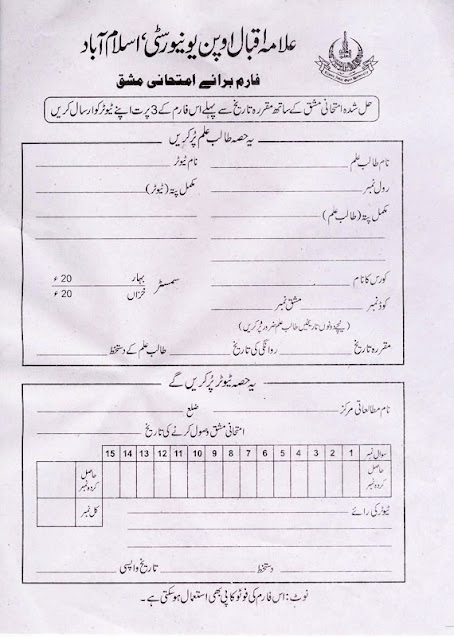 علامہ اقبال اوپن یونیورسٹی، اسلام آباد
فارم برائے امتحانی مشق
حل شدہ امتحانی مشق کے ساتھ مقررہ تاریخ سے پہلے اس فارم کے 3 پرت اپنے ٹیوٹر کو ارسال کریں
یہ حصہ طالب علم پُر کریں
نام طالب علم نام ٹیوٹر
رول نمبر مکمل پتہ (ٹیوٹر)
مکمل پتہ (طالب علم)
کورس کا نام سمسٹر بہار 20ء
کوڈ نمبر مشق نمبر خزاں 20ء
(نیچے دونوں تاریخیں طالب علم ضرور پُر کریں)
مقررہ تاریخ روانگی کی تاریخ طالب علم کے دستخط
یہ حصہ ٹیوٹر پُر کریں گے
نام مطالعاتی مرکز ضلع
امتحانی مشق وصول کرنے کی تاریخ
سوال نمبر 1 2 3 4 5 6 7 8 9 10 11 12 13 14 15
حاصل کردہ نمبر حاصل کردہ نمبر
ٹیوٹر کی رائے کل نمبر
دستخط تاریخ واپسی
نوٹ: اس فارم کی فوٹو کاپی بھی استعمال ہو سکتی ہے۔